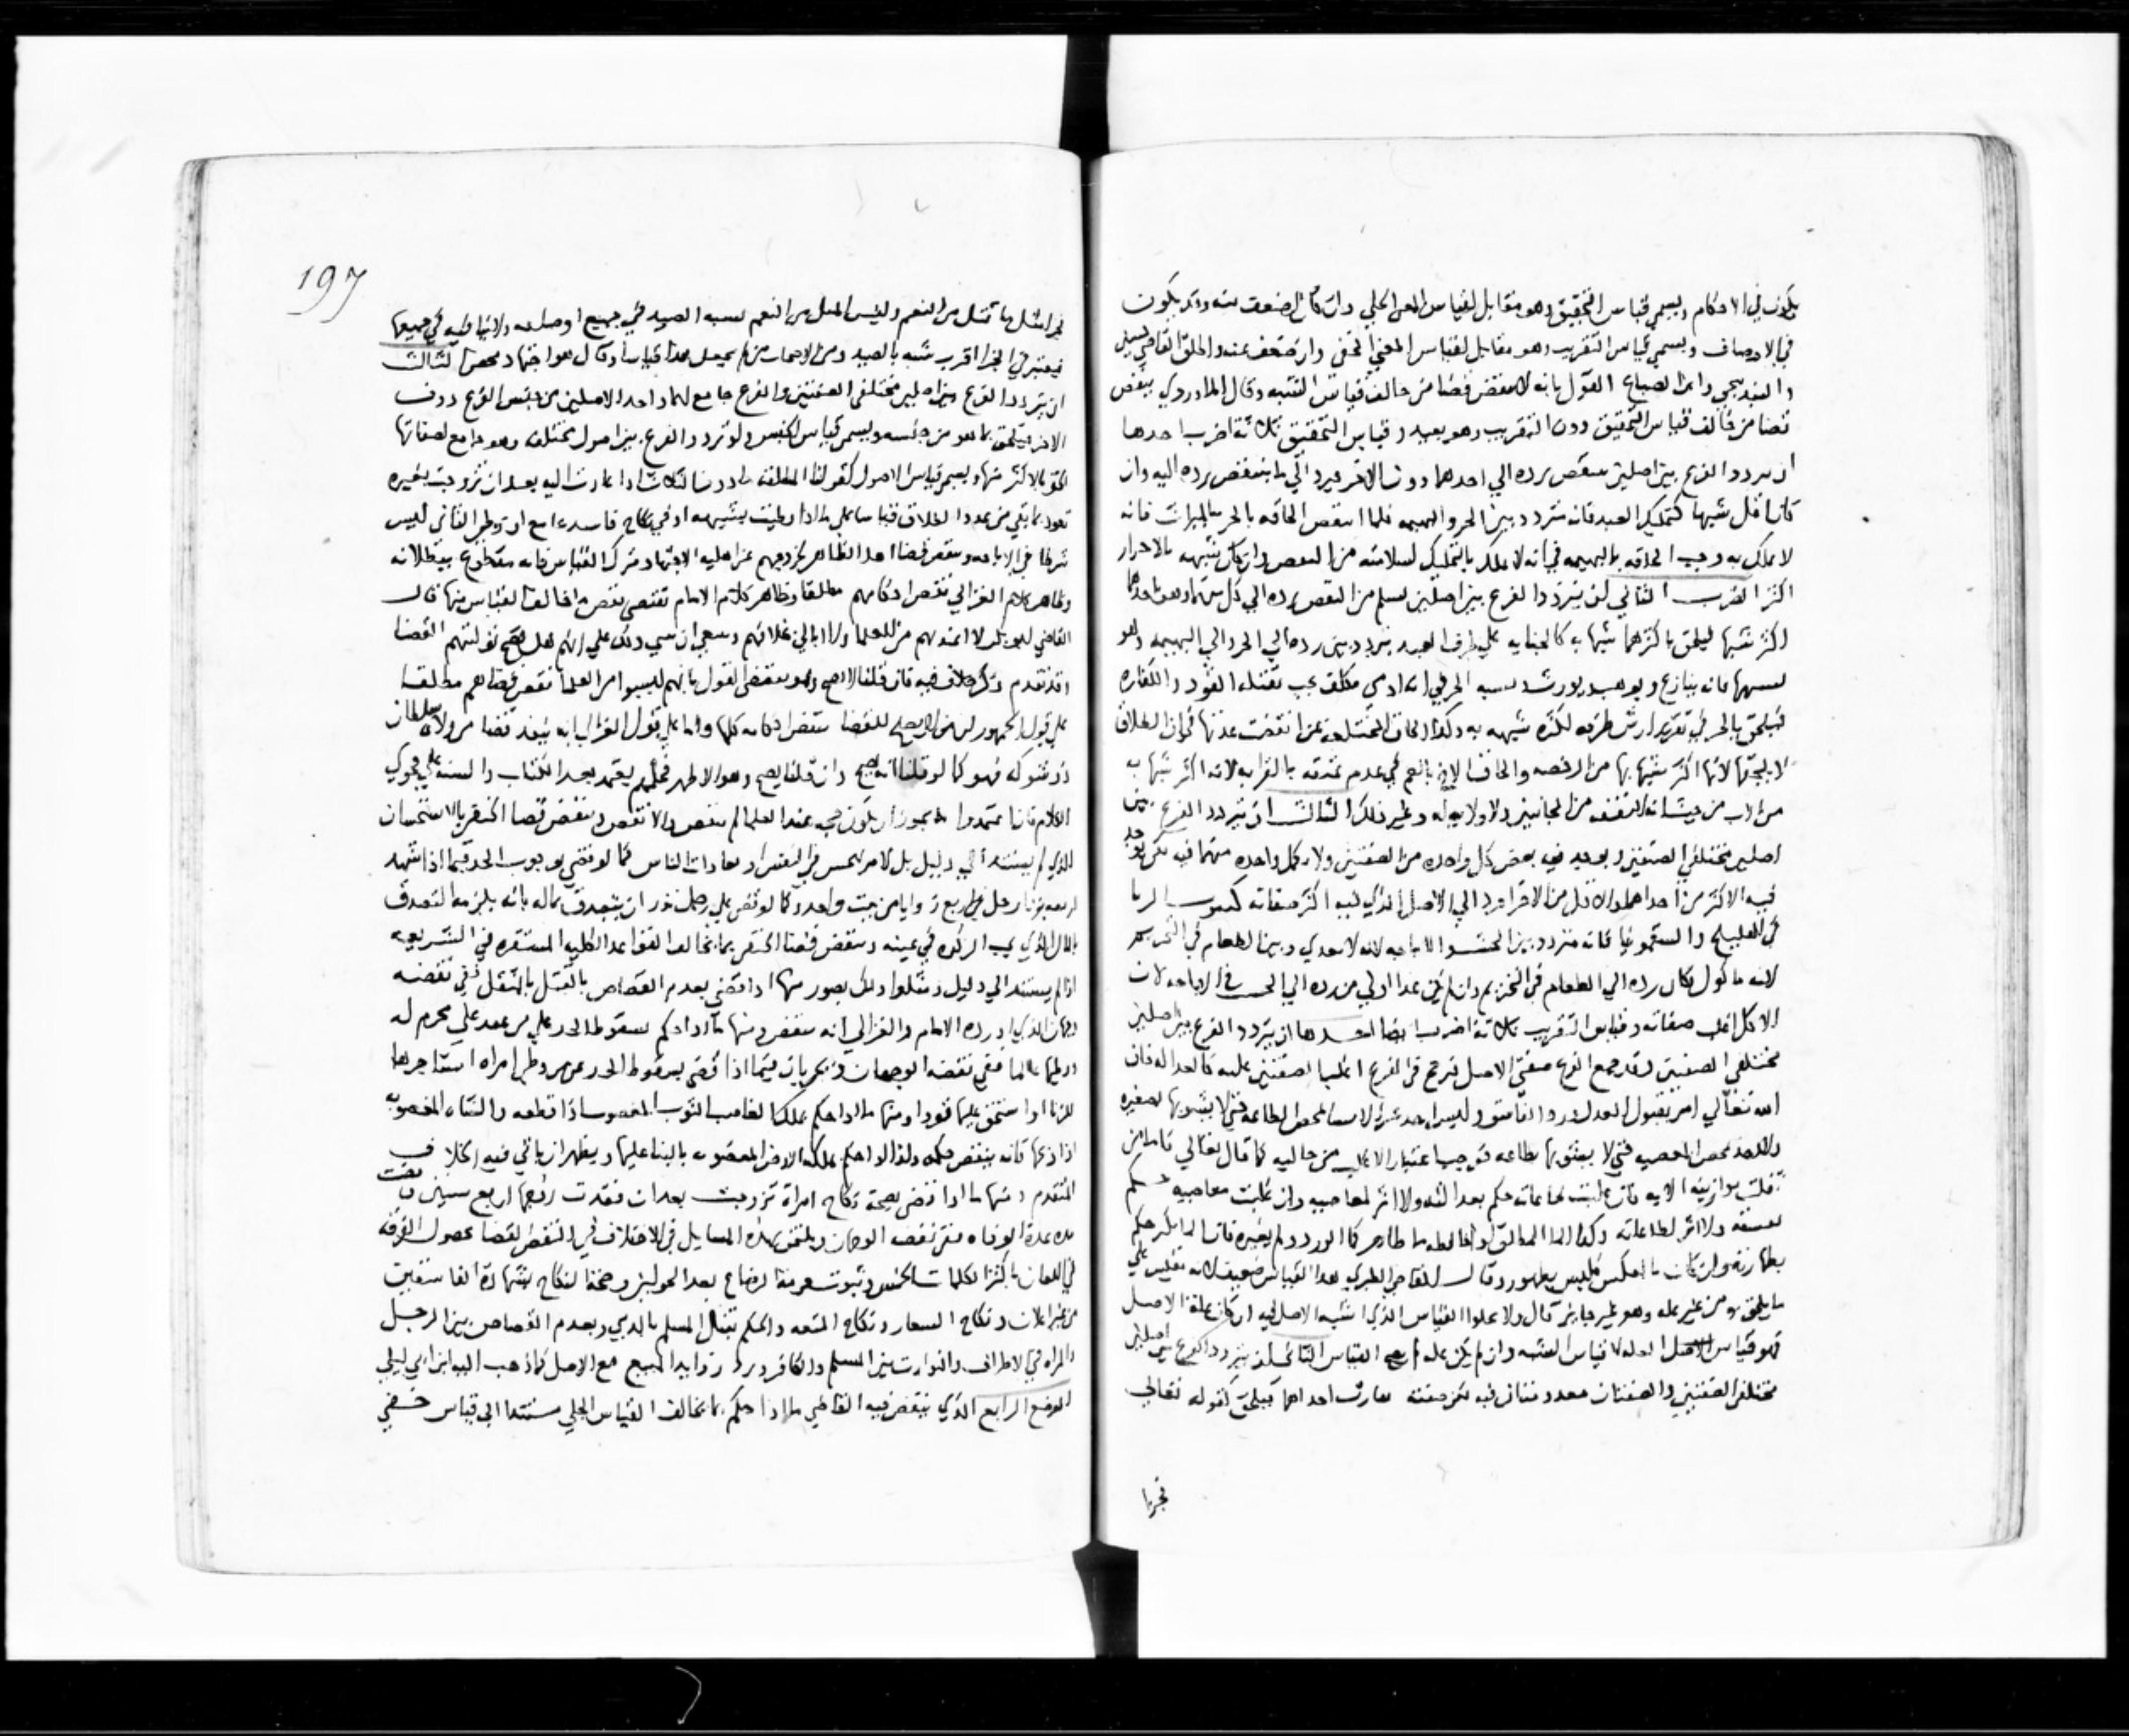 يكون في الاحكام ويسمي قياس التحقيق وهو مقابل لقياس المعني الجلي وان كان اضعف منه وقد يكون
في الاوصاف ويسمي قياس التقريب وهو مقابل لقياس المعني الخفي وان ضعف عنه واطلق القاضي حسين
والبندنيجي وابن الصباغ القول بانه لا ينقض قضا من خالف قياس الشبه وقال الماوردي ينقض
قضا من خالف قياس التحقيق دون التقريب وهو بعيد وقياس التحقيق ثلاثة اضرب احدها
ان يتردد الفرع بين اصلين ينتقض برده الي احدهما دون الاخر فيرد الي ما لا ينتقض برده اليه وان
كان اقل شبها كتمليك العبد فانه يتردد بين الحر والبهيمه فلما انتقض الحاقه بالحر بالميراث فانه
لا يملك به وجب الحاقه بالبهيمه في انه لا يملك بالتمليك لسلامته من النقض وان كان شبهه بالاحرار
اكثر الضرب الثاني ان يتردد الفرع بين اصلين يسلم من النقض برده الي كل منهما وهو باحدهما
اكثر شبها فيلحق باكثرهما شبها به كالجنايه علي طرف العبد يتردد بين رده الي الحر والي البهيمه وهو
يشبهها فانه يباع ويوهب ويورث ويشبه الحر في انه ادمي مكلف يجب بقتله القود والكفاره
فيلحق بالحر في تقدير ارش طرفه لكثره شبهه به وكذا الحاق المختلعه عن انقضت عدتها في ان الطلاق
لا يلحقها لانها اكثر شبها بها من الرجعيه والحاق الاخ بالعم في عدم عتقه بالقرابه لانه اكثر شبها به
من الاب من حيث انه لا ينفذ من الجانبين ولا ولايه له وغير ذلك الثالث ان يتردد الفرع بين
اصلين مختلفي الصفتين ويوجد فيه بعض كل واحده من الصفتين ولا يكمل واحده منهما فيه لكن يوجد
فيه الاكثر من احداهما والاقل من الاخري فيرد الي الاصل الذي فيه اكثر صفاته كثبوت الربا
في الهليلج والسقمونيا فانه متردد بين الخشب في الاباحه لانه لا يغذي وبين الطعام في التحريم
لانه ماكول فكان رده الي الطعام في التحريم وان لم يكن غذا اولي من رده الي الخشب في الاباحه لان
الاكل اغلب صفاته وقياس التقريب ثلاثة اضرب ايضا احدها ان يتردد الفرع بين اصلين
مختلفي الصفتين وقد جمع الفرع صفتي الاصل فيرجح في الفرع اغلب الصفتين عليه كالعداله فان
الله تعالي امر بقبول العدل ورد الفاسق وليس احد غير الانبيا يمحض الطاعه حتي لا يشوبها بصغيره
ولا احد يمحض المعصيه حتي لا يشوبها بطاعه فوجب اعتبار الاغلب من حاليه كما قال تعالي فاما من
ثقلت موازينه الايه فان غلبت طاعاته حكم بعدالته ولا اثر لمعاصيه وان غلبت معاصيه حكم
بفسقه ولا اثر لطاعاته وكذا الما المطلق اذا خالطه ما طاهر كما الورد ولم يغيره فان الما اكثر حكم
بطهارته وان كان بالعكس فليس بطهور وقال القاضي الطبري هذا القياس ضعيف لانه تعليق علي
ما يلحق به من غير عله وهو غير جايز قال ولا يخلوا القياس الذي اشبه الاصل فيه ان كان علة الاصل
فهو قياس العله لا قياس الشبه وان لم يكن عله لم يصح القياس الثاني ان يتردد الفرع بين اصلين
مختلفي الصفتين والصفتان معدومتان فيه لكن صفته تقارب احداهما فيلحق كقوله تعالي
فجزا
197
فجزا مثل ما قتل من النعم وليس المثل من النعم يشبه الصيد في جميع اوصافه ولا ينافيه في جميعها
فيعتبر في الجزا اقرب شبه بالصيد ومن الاصحاب من لم يجعل هذا قياسا وقال هو اجتهاد محض الثالث
ان يتردد الفرع بين اصلين مختلفي الصفتين والفرع جامع لهما واحد الاصلين من جنس الفرع دون
الاخر فيلحق بما هو من جنسه ويسمي قياس الجنس ولو تردد الفرع بين اصول مختلفه وهو جامع لصفاتها
الحق بالاكثر منها ويسمي قياس الاصول كقولنا المطلقه ما دون الثلاث اذا عادت اليه بعد ان تزوجت بغيره
تعود بما بقي من عدد الطلاق قياسا علي ما اذا وطيت بشبهه او في نكاح فاسد بجامع ان وطي الثاني ليس
شرطا في الاباحه وينقض قضا اهل الظاهر لخروجهم عن اهليه الاجتهاد بترك القياس فانه مقطوع ببطلانه
وظاهر كلام الغزالي نقض احكامهم مطلقا وظاهر كلام الامام يقتضي نقض ما خالف القياس منها قال
القاضي ابو بكر لا اعدهم من العلما ولا ابالي بخلافهم وينبغي ان يبني ذلك علي انهم هل تصح توليتهم القضا
وقد تقدم ذكر خلاف فيه فان قلنا لا يصح وهو مقتضي القول بانهم ليسوا من العلما نقض قضاهم مطلقا
علي قول الجمهور ان من لا يصلح للقضا تنقض احكامه كلها واما علي قول الغزالي بانه ينفذ قضا من ولاه سلطان
ذو شوكه فهو كما لو قلنا انه يصح وان قلنا يصح وهو الاظهر فحكمهم يعتمد بعد الكتاب والسنه علي فحوي
الكلام فاذا اعتمدوا ما يجوز ان يكون حجه عند العلما لم ينقض والا نقض وينقض قضا الحنفي بالاستحسان
الذي لم يستند الي دليل بل لامر يحس في النفس او بعادات الناس كما لو قضي بوجوب الحد فيما اذا شهد
اربعه بزنا رجل في اربع زوايا من بيت واحد وكما لو قضي علي رجل نذر ان يتصدق بماله بانه يلزمه التصدق
بالمال الذي يجب الزكوه في عينه وينقض قضا الحنفي بما يخالف القواعد الكليه المستقره في الشريعه
اذا لم يستند الي دليل ومثلوا ذلك بصور منها اذا قضي بعدم القصاص بالقتل بالمثقل ففي نقضه
وجهان الذي اورده الامام والغزالي انه ينقض ومنها ما اذا حكم بسقوط الحد علي من عقد علي محرم له
ووطيها عالما ففي نقضه الوجهان ويجريان فيما اذا قضي بسقوط الحد عمن وطي امراه استاجرها
للزنا او استحق عليها قودا ومنها ما اذا حكم بملك الغاصب الثوب المغصوب اذا قطعه والشاه المغصوبه
اذا ذبحها فانه ينقض حكمه وكذا لو حكم بملكه الارض المغصوبه بالبنا عليها ويظهر ان ياتي فيه الخلاف
المتقدم ومنها ما اذا قضي بصحة نكاح امراة تزوجت بعد ان فقدت زوجها اربع سنين ومضت
مده عدة الوفاه ففي نقضه الوجهان ويلتحق بهذه المسايل في الاختلاف في النقض القضا بحصول الفرقه
في اللعان باكثر الكلمات الخمس وثبوت حرمة الرضاع بعد الحولين وصحة النكاح بشهادة الفاسقين
من غير اعلان ونكاح الشغار ونكاح المتعه والحكم بقتل المسلم بالذمي وبعدم القصاص بين الرجل
والمراه في الاطراف والتوارث بين المسلم والكافر وبرد زوايد المبيع مع الاصل كما ذهب اليه ابن ابي ليلي
الموضع الرابع الذي ينقض فيه القاضي ما اذا حكم بما يخالف القياس الجلي مستندا الي قياس خفي